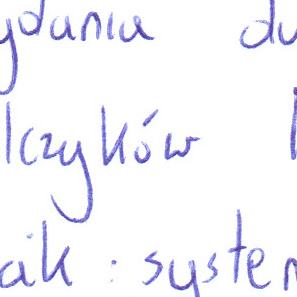 ydania du
lczyków
aik : system